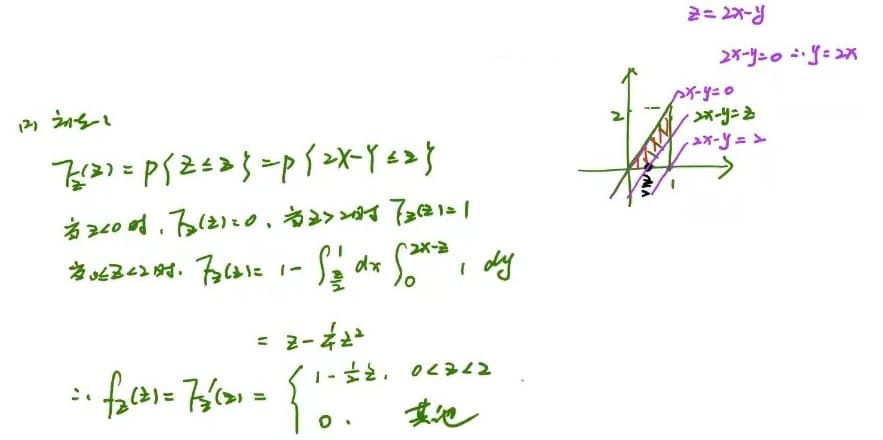 z = 2x-y
2x-y=0 ∴ y=2x
2x-y=0
2
2x-y=z
2x-y=2
z/2
1
(2) 方法1
F_Z(z) = P{Z≤z} = P{2X-Y≤z}
当z<0时, F_Z(z)=0, 当z>2时 F_Z(z)=1
当0≤z<2时. F_Z(z)= 1 - ∫_{z/2}^{1} dx ∫_{0}^{2x-z} 1 dy
= z - 1/4 z²
∴ f_Z(z) = F_Z'(z) = { 1 - 1/2 z, 0<z<2
0. 其他